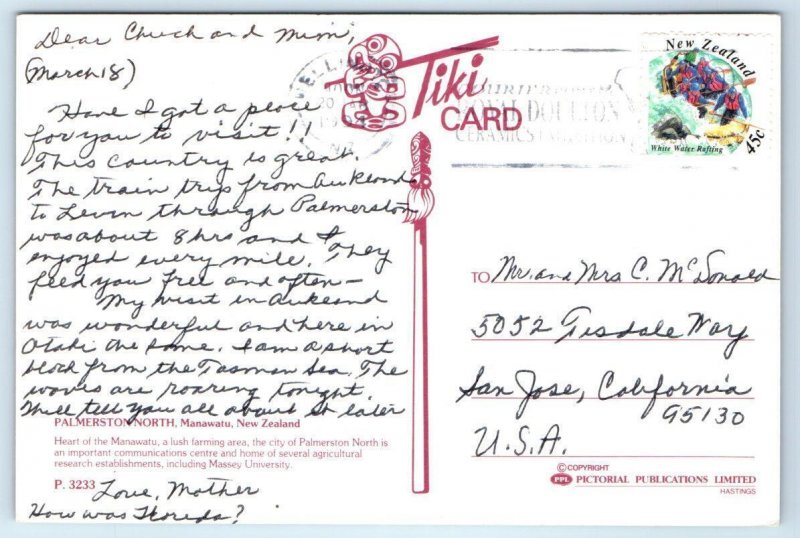 Dear Chuck and Mimi,
(March 18)
Have I got a place
for you to visit!!
This country is great.
The train trip from Aukland
to Levin through Palmerston
was about 8 hrs and I
enjoyed every mile. They
feed you free and often—
My visit in Aukland
was wonderful and here in
Otaki the same. I am a short
block from the Tasman Sea. The
waves are roaring tonight.
Will tell you all about it later
PALMERSTON NORTH, Manawatu, New Zealand
Heart of the Manawatu, a lush farming area, the city of Palmerston North is
an important communications centre and home of several agricultural
research establishments, including Massey University.
P. 3233
Love, Mother
How was Floreda?
Tiki
CARD
ROYAL DOULTON
CERAMICS EXHIBITION
New Zealand
White Water Rafting
45c
TO Mr. and Mrs C. McDonald
5052 Tisdale Way
San Jose, California
95130
U.S.A.
© COPYRIGHT
PPL PICTORIAL PUBLICATIONS LIMITED
HASTINGS